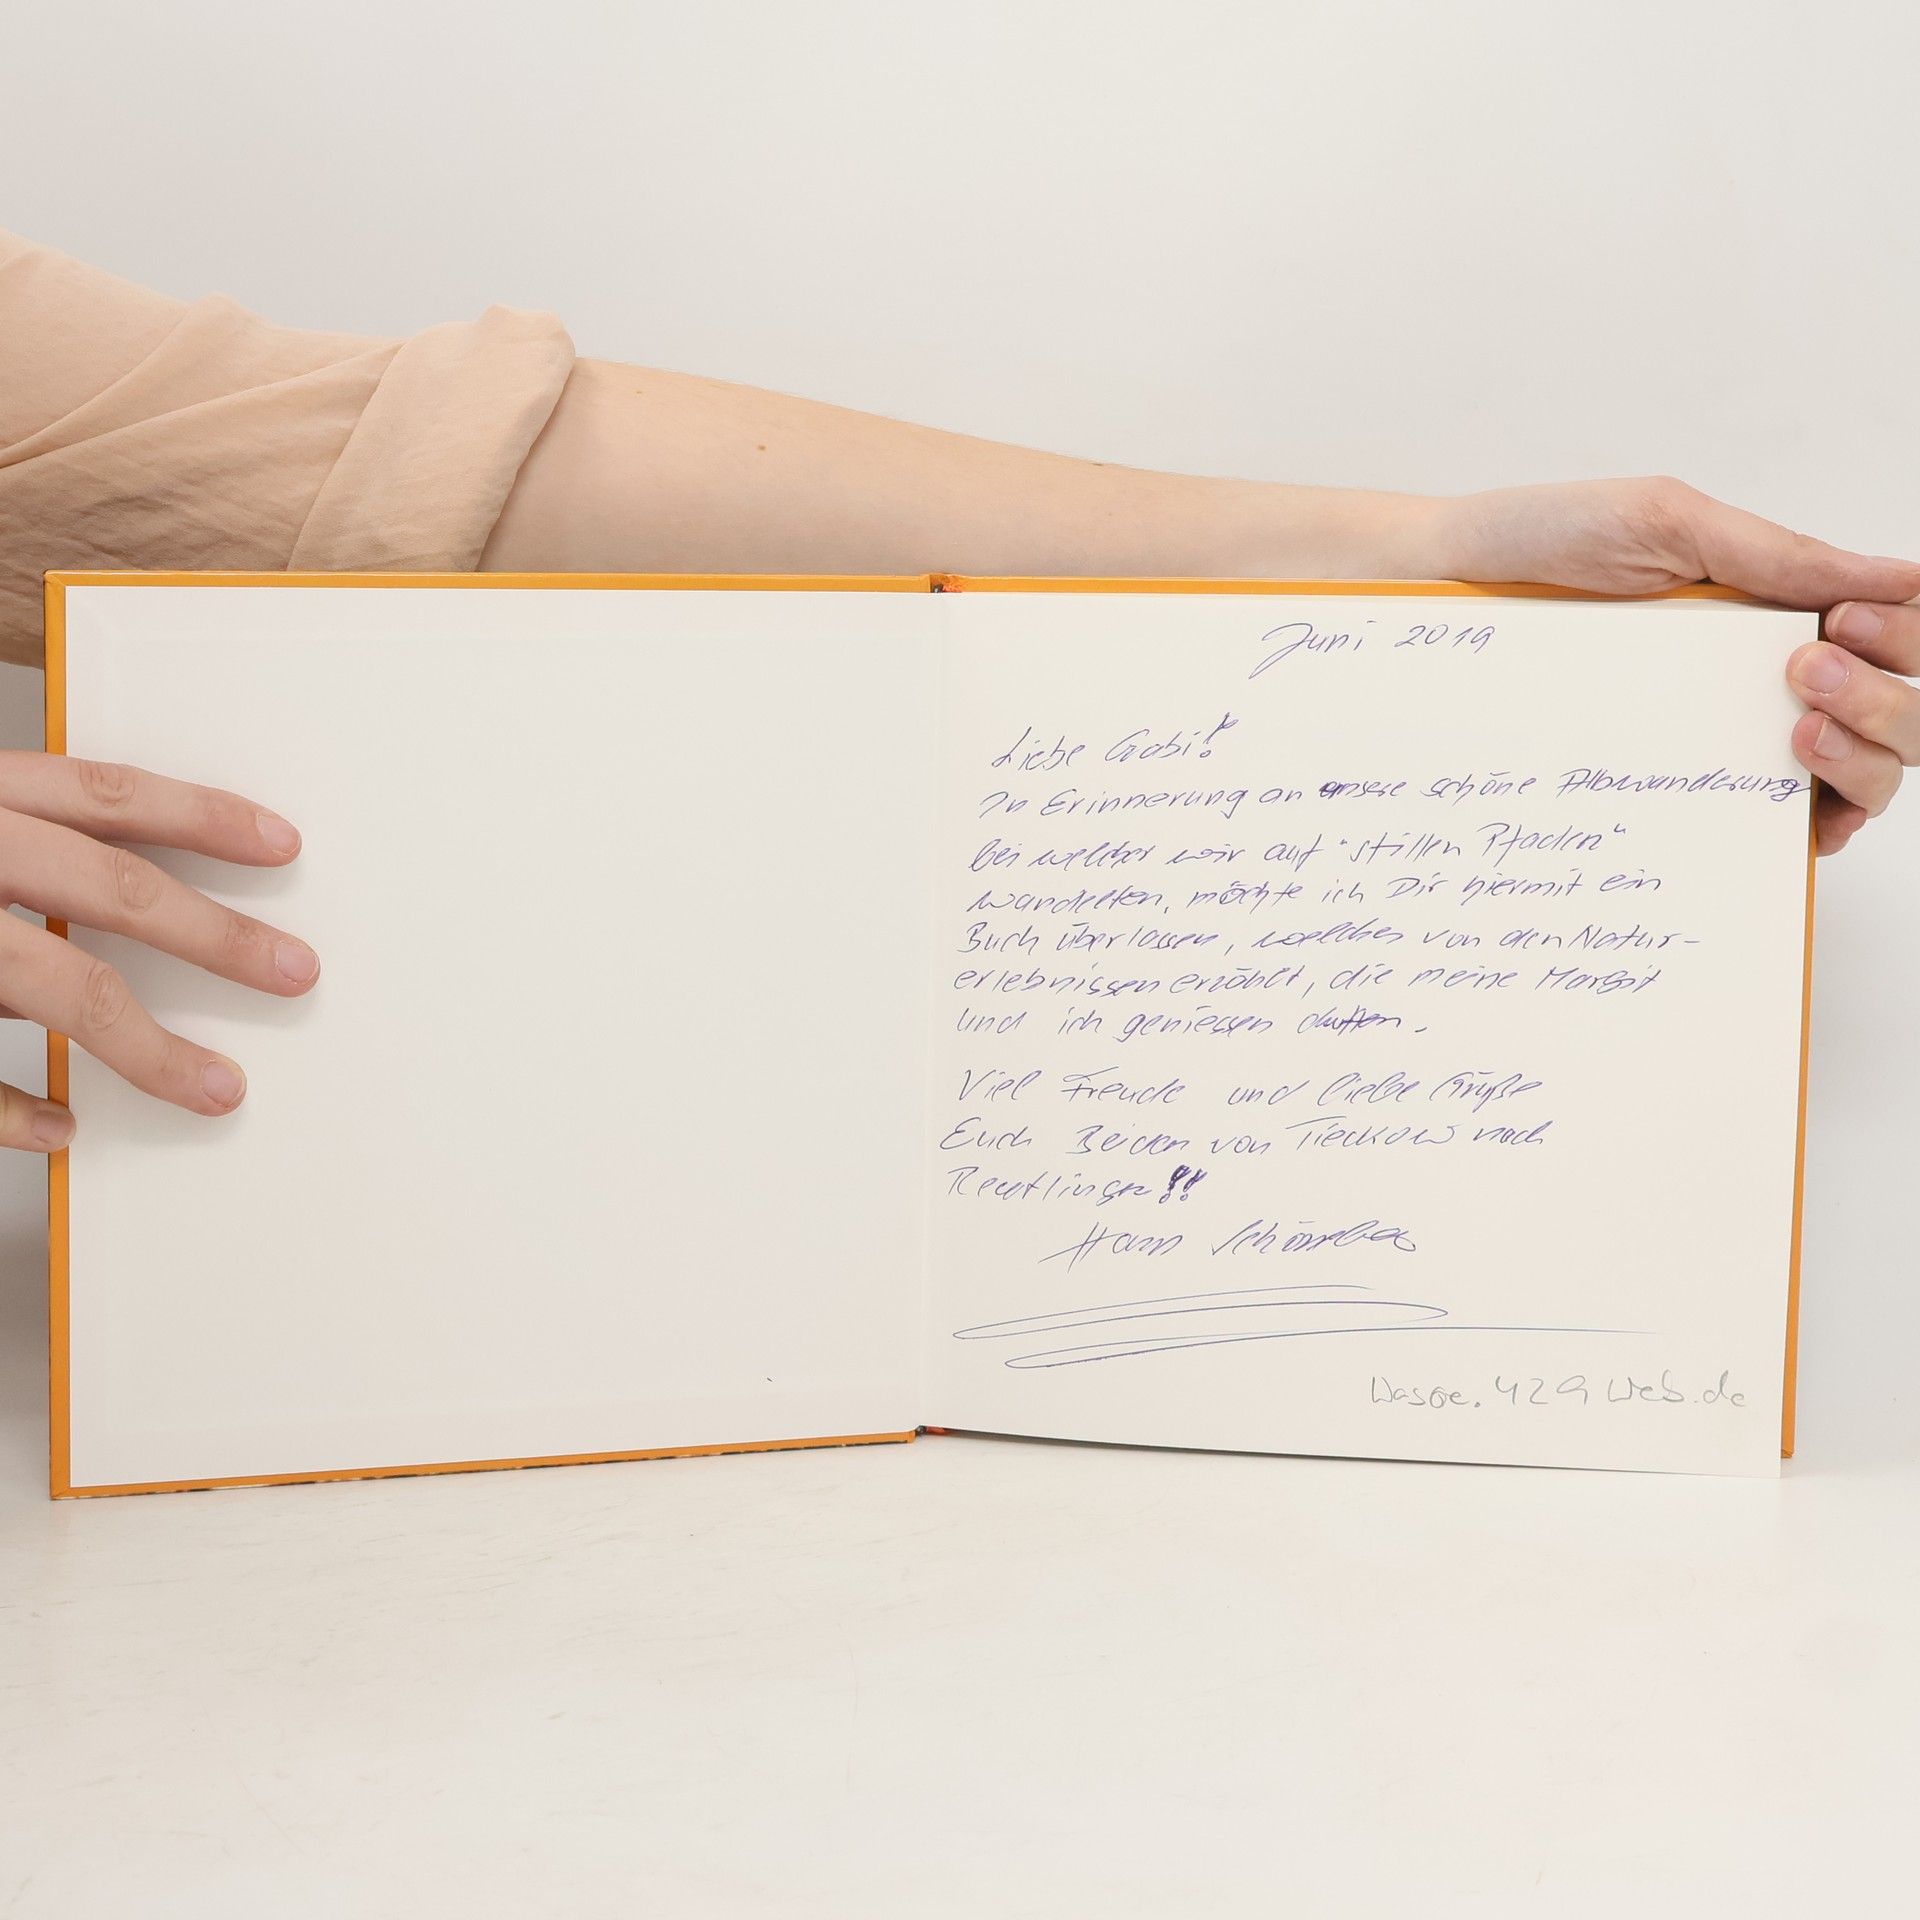 Juni 2019
Liebe Gabi!
In Erinnerung an unsere schöne Albwanderung
bei welcher wir auf "stillen Pfaden"
wandelten, möchte ich Dir hiermit ein
Buch überlassen, welches von den Natur-
erlebnissen erzählt, die meine Margit
und ich geniessen durften.
Viel Freude und liebe Grüße
Euch Beiden von Tieckow nach
Reutlingen!!
Hans
429 Web.de